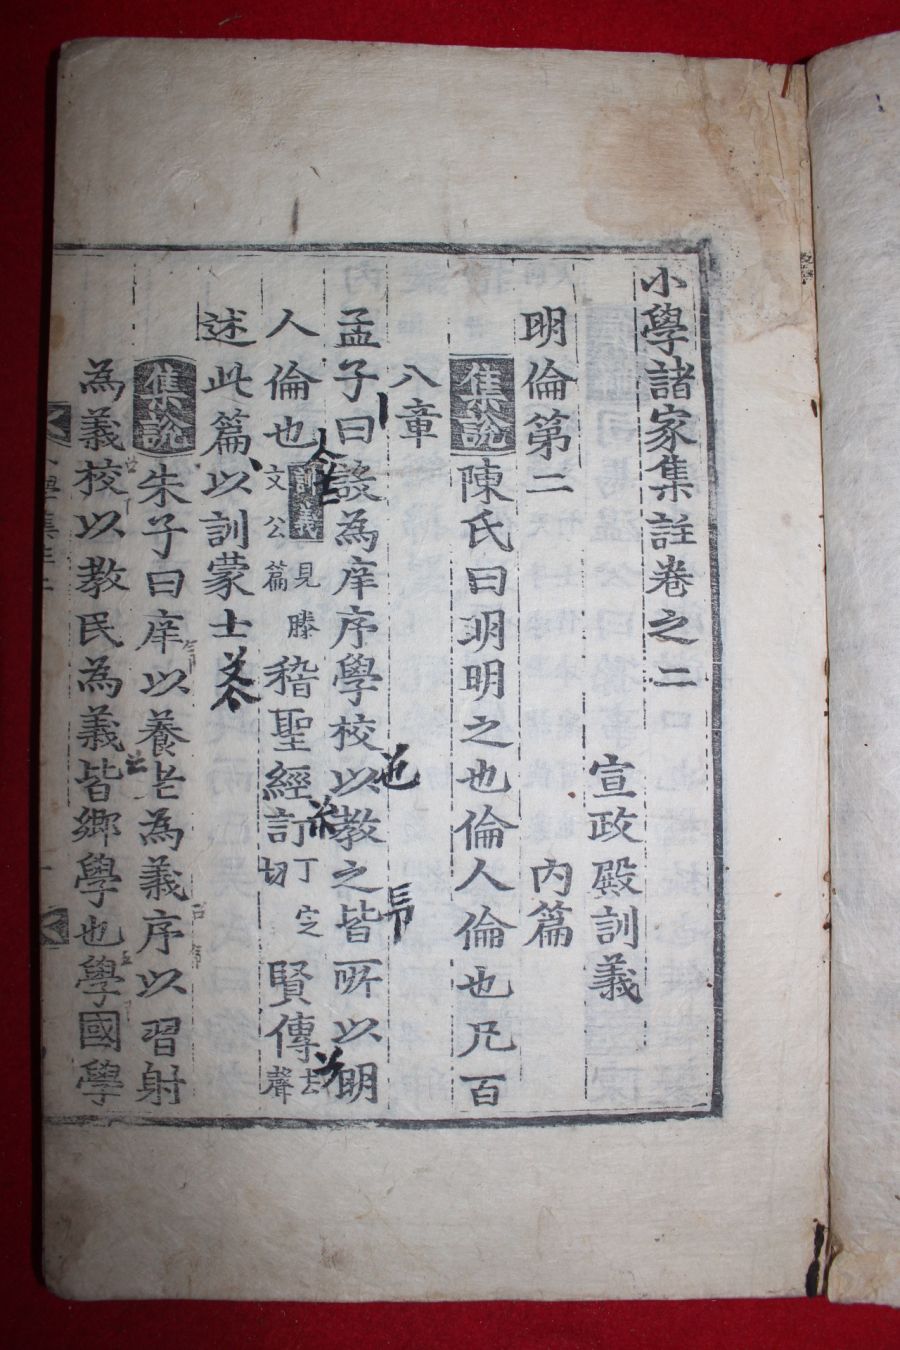 小學諸家集註卷之二
宣政殿訓義
明倫第二 內篇
集說 陳氏曰明明之也倫人倫也凡百
八章
孟子曰設為庠序學校以教之皆所以明
人倫也 訓義 見滕文公篇 稽聖經訂 丁定切 賢傳 去聲
述此篇以訓蒙士
集說 朱子曰庠以養老為義序以習射
為義校以教民為義皆鄉學也學國學